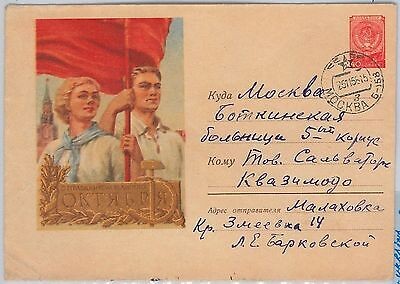 40
МОСКВА
С ПРАЗДНИКОМ ВЕЛИКОГО
ОКТЯБРЯ
Куда Москва
Боткинская
больница 5ый корпус
Кому Тов. Сальваторе
Квазимодо
Адрес отправителя Малаховка
Кр. Змеевка 14
Л.Е. Барковской